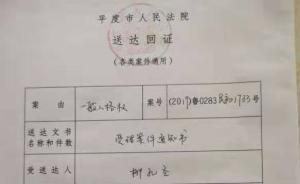 平度市人民法院
送达回证
(各类案件通用)
案由 一般人格权 案号 (2017)鲁0283民初1733号
送达文书名称和件数 受理案件通知书
受送达人